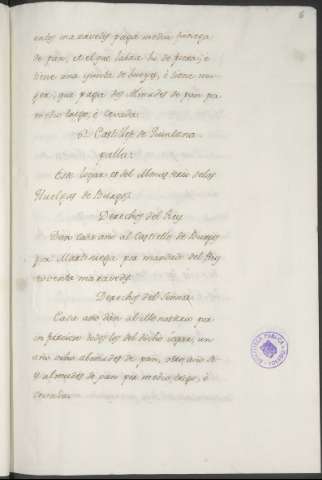 6
entos maravedis paga media fanega
de pan, et el que labra hi de fuera, e
tiene una yunta de bueyes, e tiene mu-
ger, que paga dos Almudes de pan por
medio trigo, e cevada.
6. Castillo de Quintana
palla.
Este logar es del Monesterio delas
Huelgas de Burgos.
Derechos del Rey
Dan cada año al Castiello de Burgos
por Martiniega por mandado del Rey
noventa maravedis.
Derechos del Sennor
Cada año dan al Monasterio por
infurcion todos los del dicho logar, un
año ocho almudes de pan, otro año de
almudes de pan por medio, trigo, e
cevada.
BIBLIOTECA PUBLICA